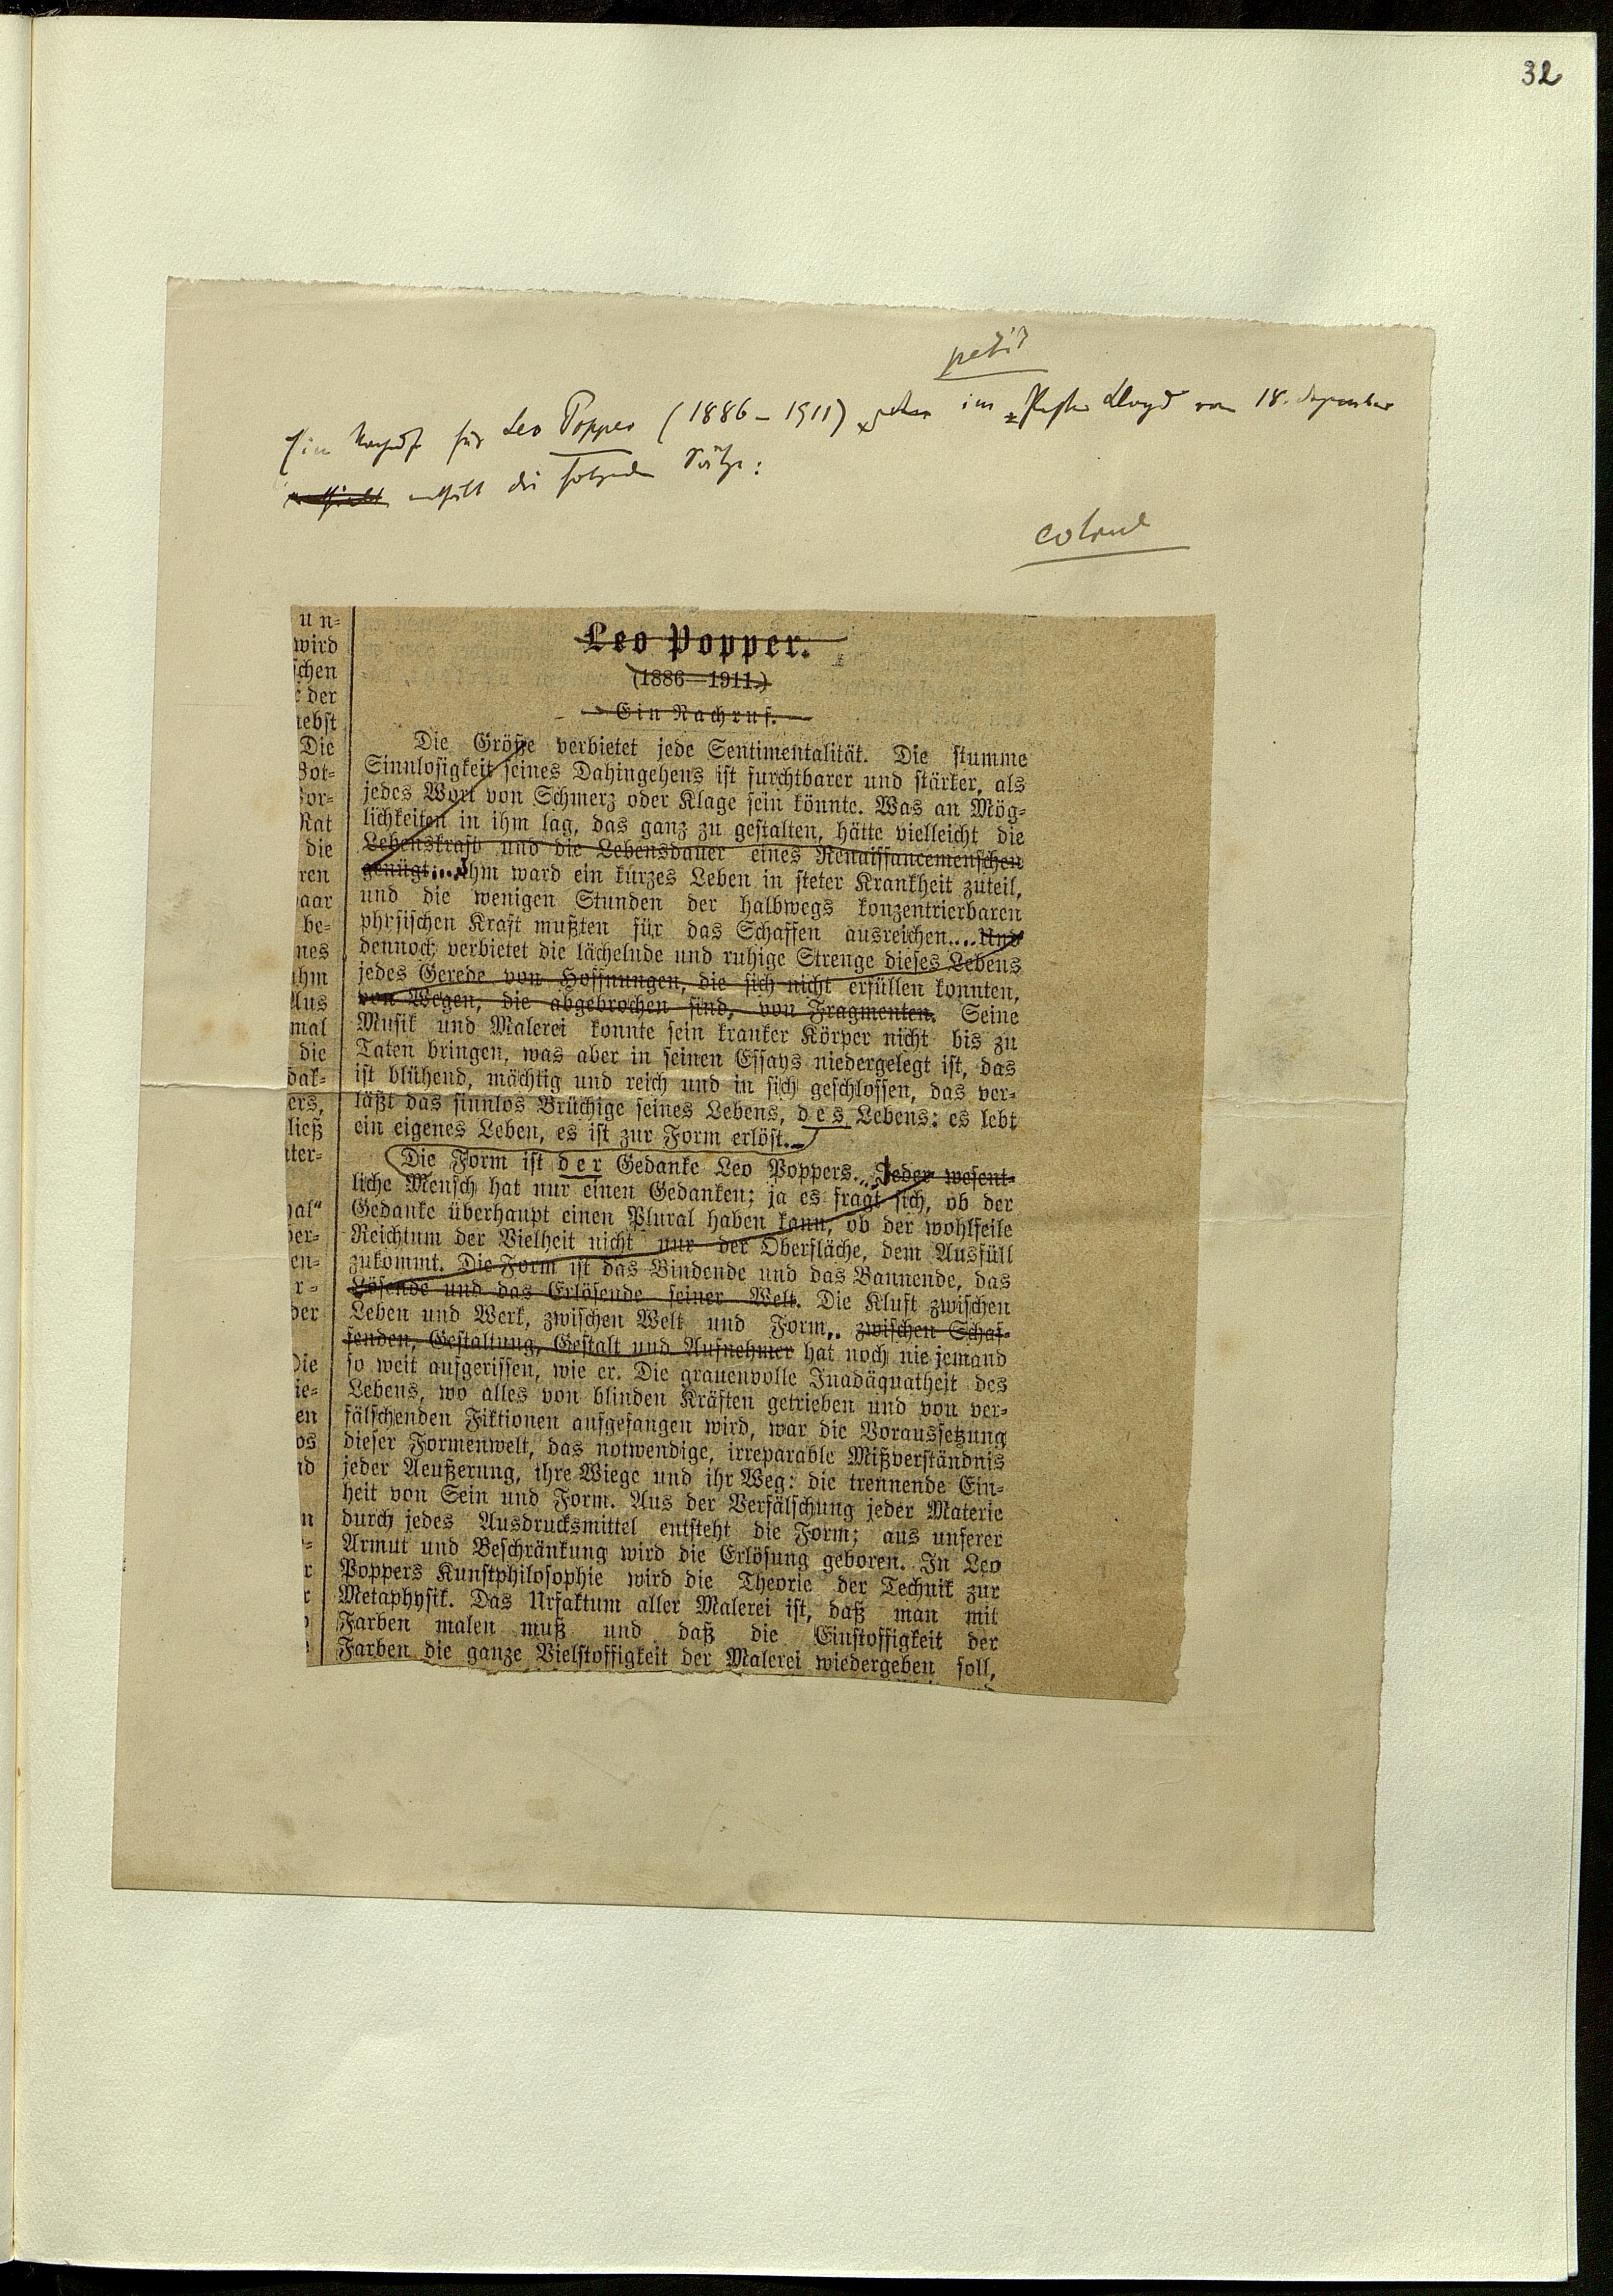 32
petit
Ein Nachruf für Leo Popper (1886–1911) im Pester Lloyd vom 18. Dezember
enthält die folgenden Sätze:
un-
wird
schen
der
Die
Rat
die
ren
aar
be-
nes
ihm
Aus
mal
die
ers,
ließ
der
Die
en
Leo Popper.
(1886—1911.)
Ein Nachruf.
Die Größe verbietet jede Sentimentalität. Die stumme
Sinnlosigkeit seines Dahingehens ist furchtbarer und stärker, als
jedes Wort von Schmerz oder Klage sein könnte. Was an Mög-
lichkeiten in ihm lag, das ganz zu gestalten, hätte vielleicht die
Lebenskraft und die Lebensdauer eines Renaissancemenschen
genügt... Ihm ward ein kurzes Leben in steter Krankheit zuteil,
und die wenigen Stunden der halbwegs konzentrierbaren
physischen Kraft mußten für das Schaffen ausreichen.... Und
dennoch verbietet die lächelnde und ruhige Strenge dieses Lebens
jedes Gerede von Hoffnungen, die sich nicht erfüllen konnten,
von Wegen, die abgebrochen sind, von Fragmenten. Seine
Musik und Malerei konnte sein kranker Körper nicht bis zu
Taten bringen, was aber in seinen Essays niedergelegt ist, das
ist blühend, mächtig und reich und in sich geschlossen, das ver-
läßt das sinnlos Brüchige seines Lebens, des Lebens: es lebt
ein eigenes Leben, es ist zur Form erlöst.
Die Form ist der Gedanke Leo Poppers... Jeder wesent-
liche Mensch hat nur einen Gedanken; ja es fragt sich, ob der
Gedanke überhaupt einen Plural haben kann, ob der wohlfeile
Reichtum der Vielheit nicht nur der Oberfläche, dem Ausfüll
zukommt. Die Form ist das Bindende und das Bannende, das
Lösende und das Erlösende seiner Welt. Die Kluft zwischen
Leben und Werk, zwischen Welt und Form, zwischen Schaf-
fenden, Gestaltung, Gestalt und Aufnehmer hat noch nie jemand
so weit aufgerissen, wie er. Die grauenvolle Inadäquatheit des
Lebens, wo alles von blinden Kräften getrieben und von ver-
fälschenden Fiktionen aufgefangen wird, war die Voraussetzung
dieser Formenwelt, das notwendige, irreparable Mißverständnis
jeder Aeußerung, ihre Wiege und ihr Weg: die trennende Ein-
heit von Sein und Form. Aus der Verfälschung jeder Materie
durch jedes Ausdrucksmittel entsteht die Form; aus unserer
Armut und Beschränkung wird die Erlösung geboren. In Leo
Poppers Kunstphilosophie wird die Theorie der Technik zur
Metaphysik. Das Urfaktum aller Malerei ist, daß man mit
Farben malen muß und daß die Einstoffigkeit der
Farben die ganze Vielstoffigkeit der Malerei wiedergeben soll,